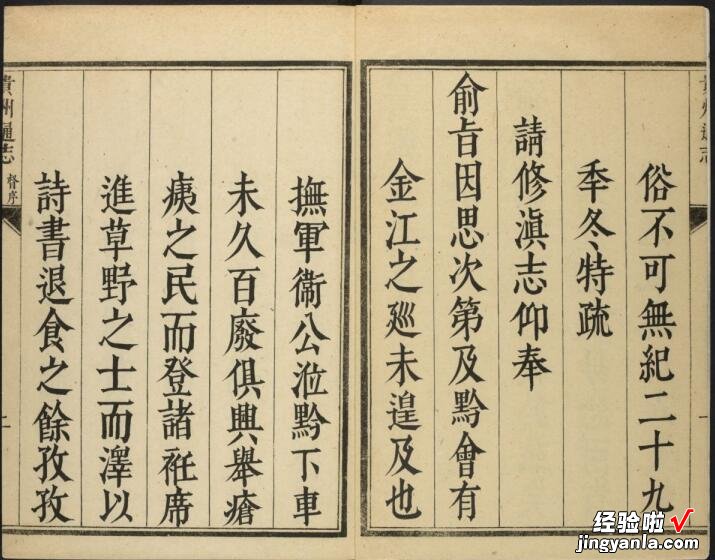 貴州通志
一
俗不可無紀二十九
秊冬特疏
請修滇志仰奉
俞旨因思次第及黔會有
金江之廵未遑及也
撫軍衞公涖黔下車
未久百廢俱興舉瘡
痍之民而登諸袵席
進草野之士而澤以
詩書退食之餘孜孜
貴州通志
督序
二
经验啦√
jingyanla.com